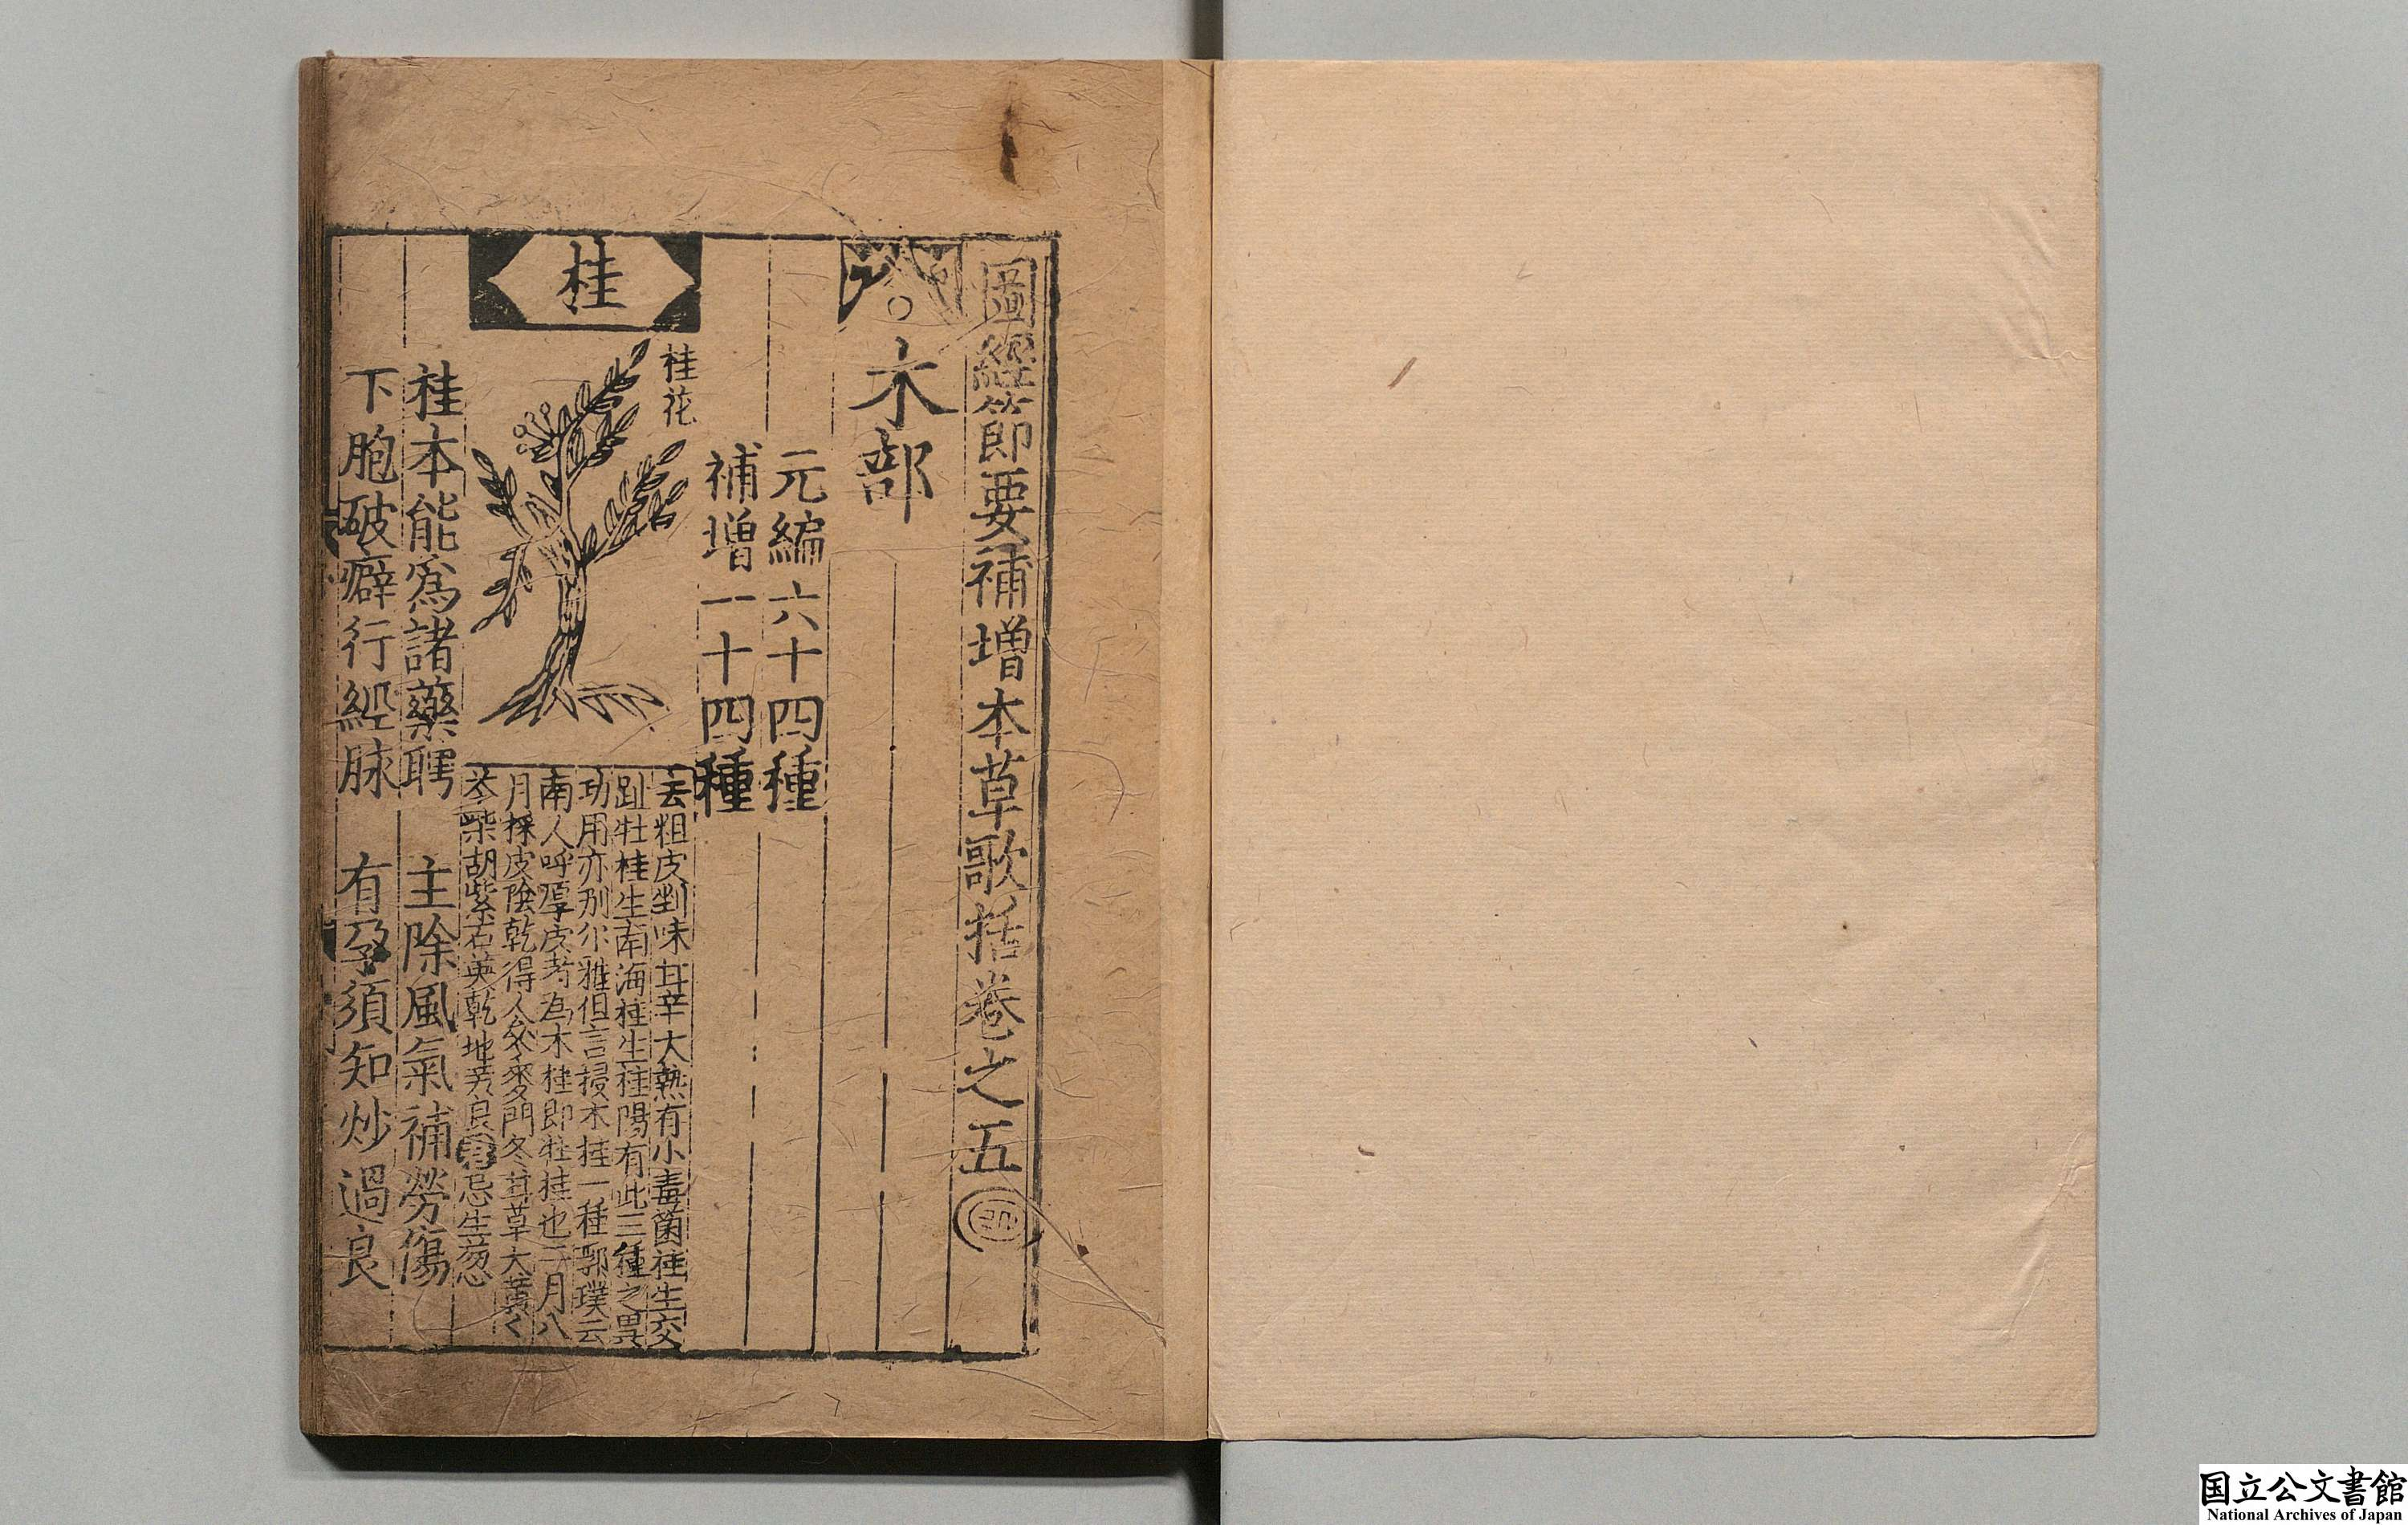 圖經節要補增本草歌括卷之五
木部
元編六十四種
補增一十四種
桂
桂花
去粗皮剉味甘辛大熱有小毒菌桂生交
趾牡桂生南海桂生桂陽有此三種之異
功用亦别尓雅但言梫木桂一種郭璞云
南人呼厚皮者為木桂即牡桂也二月八
月採皮陰乾得人參麥門冬甘草大黄黄
芩柴胡紫石英乾地黄良 忌生葱
桂本能爲諸藥聘 主除風氣補勞傷
下胞破癖行經脉 有孕須知炒過良
国立公文書館
National Archives of Japan